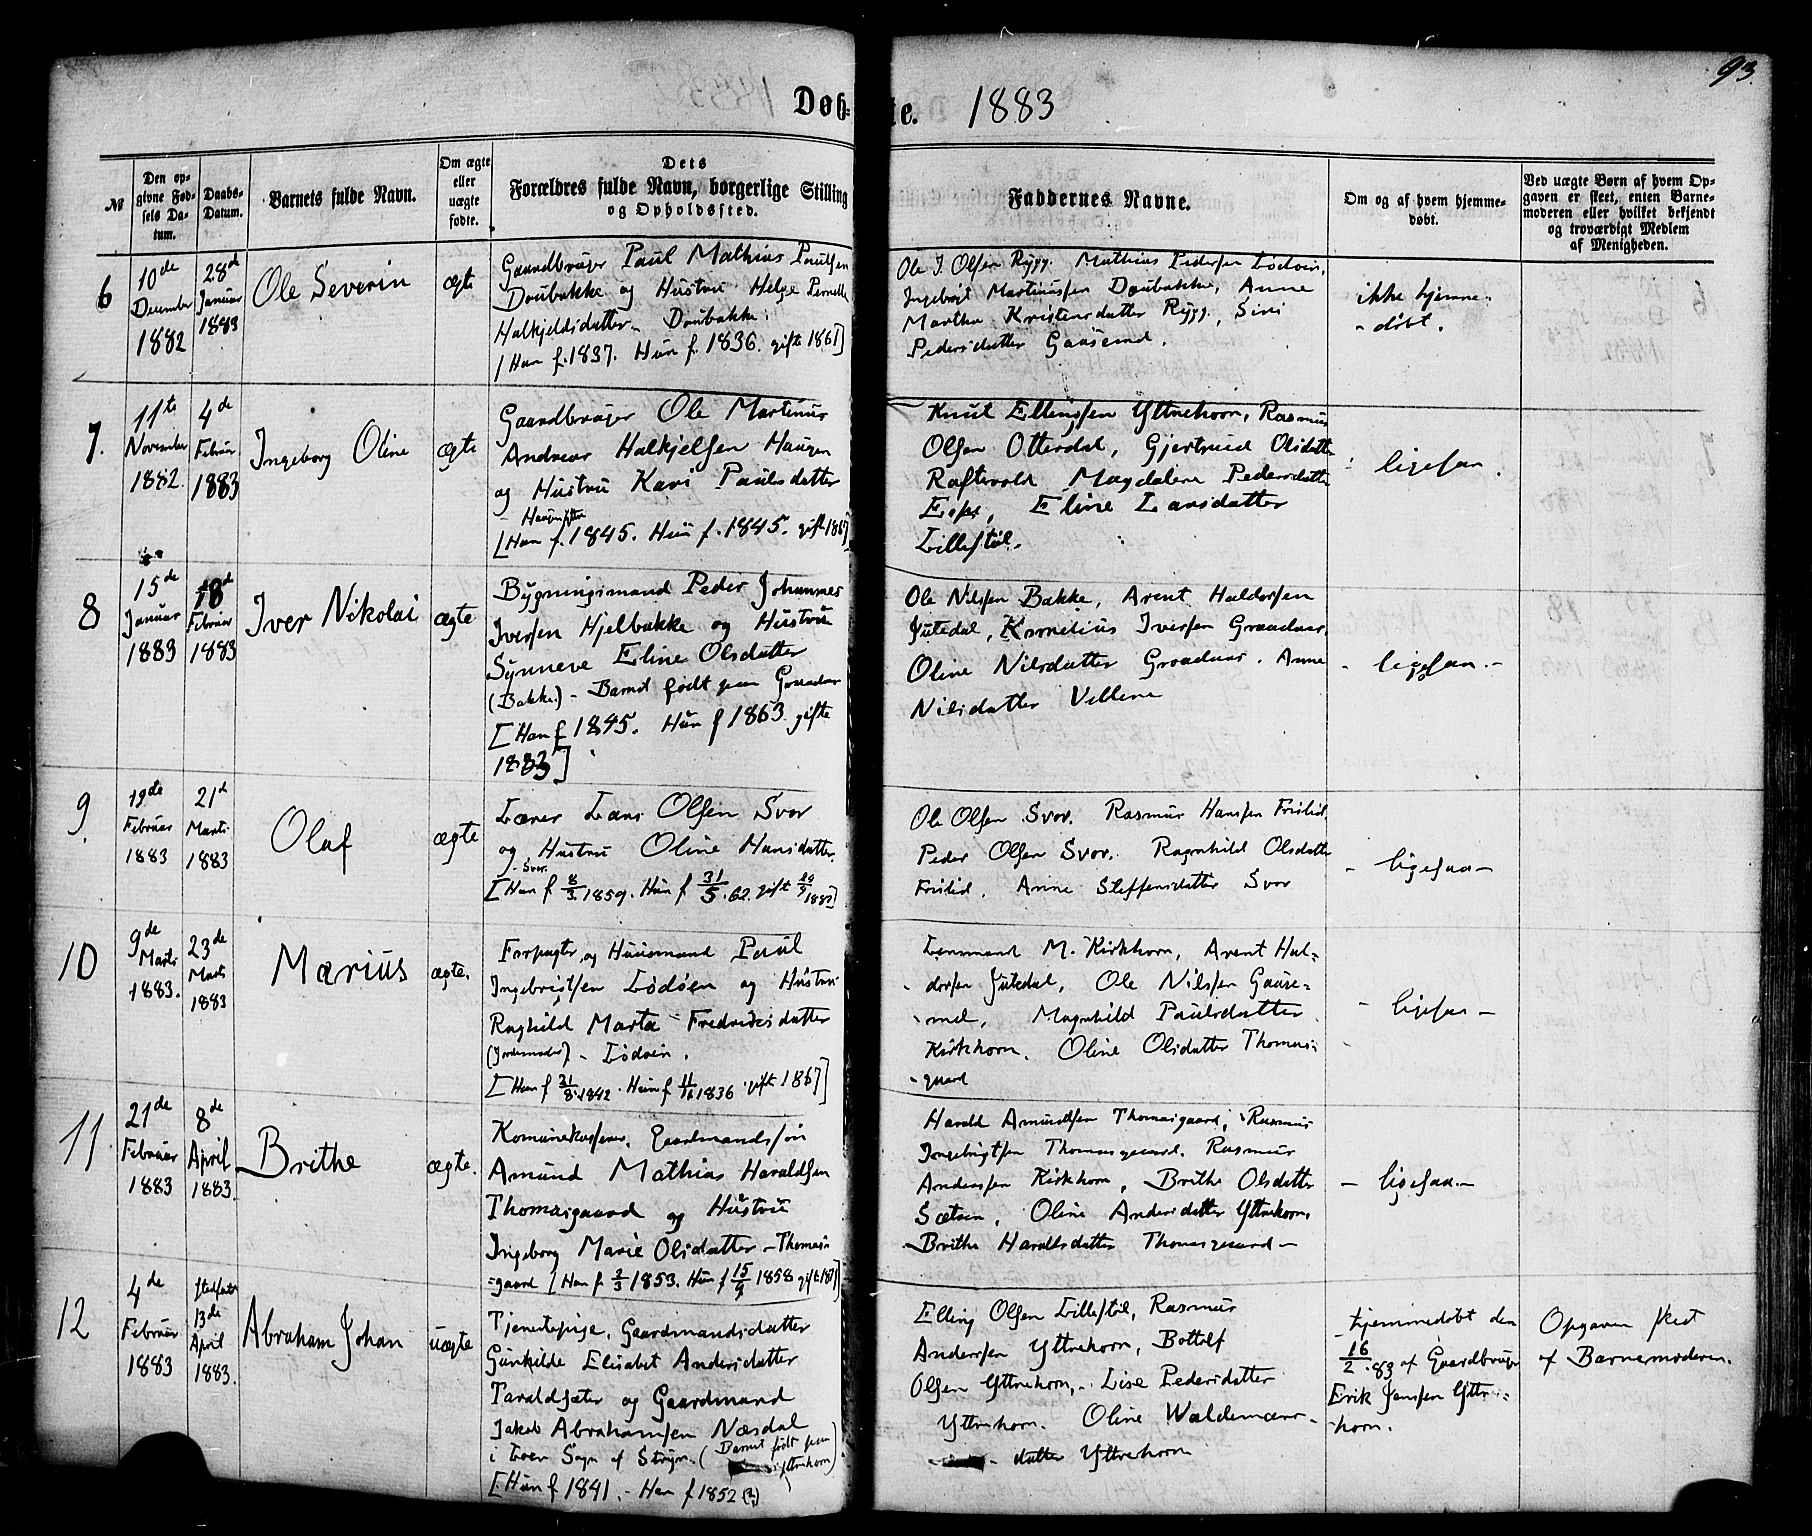 93
Døb-
te. 1883
№
Den op-
givne Fød-
sels Da-
tum.
Daabs-
Datum.
Barnets fulde Navn.
Om ægte
eller
uægte
fødte.
Dets
Forældres fulde Navn, borgerlige Stilling
og Opholdssted.
Faddernes Navne.
Om og af hvem hjemme-
døbt.
Ved uægte Børn af hvem Op-
gaven er skeet, enten Barne-
moderen eller hvilket bekjendt
og troværdigt Medlem
af Menigheden.
6
10de
December
1882
28d
Januar
1883
Ole Severin
ægte
Gaardbruger Paul Mathias Paulsen
Doubakke og Hustru Helge Pernelle
Halkjeldsdatter - Doubakke.
[Han f. 1837. Hun f. 1836. gift 1861]
Ole J. Olsen Rygg. Mathias Pedersen Lødøen,
Ingebrigt Martinussen Doubakke, Anne
Martha Kristensdatter Rygg, Siri
Pedersdatter Gausemel.
ikke hjemme-
-døbt.
7.
11te
November
1882.
4de
Februar
1883
Ingeborg Oline
ægte
Gaardbruger Ole Martinus
Andreas Halkjelsen Haugen
og Hustru Kari Paulsdatter
[Han f. 1845. Hun f. 1845. gift 1867]
Knut Ellingsen Yttrehorn, Rasmus
Olsen Otterdal, Gjertrud Olsdatter
Raftevold Magdalene Pedersdatter
Espe, Eline Larsdatter
Lillestøl.
- ligesaa.
8
15de
Januar
1883
18de
Februar
1883
Iver Nikolai
ægte
Bygningsmand Peder Johannes
Iversen Hjelbakke og Hustru
Synneve Eline Olsdatter
(Bakke) - Barnet født paa Graadaas
[Han f 1845. Hun f 1863 gifte
1883]
Ole Nilsen Bakke, Arent Haldorsen
Jutedal, Kornelius Iversen Graadaas,
Oline Nilsdatter Graadaas. Anne
Nilsdatter Vellene
- ligesaa. -
9.
19de
Februar
1883
21d
Marts
1883
Olaf
ægte
Lærer Lars Olsen Svor
og Hustru Oline Hansdatter.
- Svor.
[Han f 8/3 1859. Hun f 31/5. 62. gift 1882]
Ole Olsen Svor. Rasmus Hansen Frislid,
Peder Olsen Svor. Ragnhild Olsdatter
Frislid, Anne Steffensdatter Svor
- ligesaa -
10
9de
Marts
1883.
23de
Marts
1883
Marius
ægte.
Forpagter og Huusmand Paul
Ingebrigtsen Lødøen og Hustru
Raghild Marta Fredriksdatter
(Jordemoder) - Lødøen.
[Han f 31/8 1842. Hun f 1836 gift 1867]
Lensmand M. Kirkhorn, Arent Hal-
dorsen Jutedal, Ole Nilsen Gause-
mel, Magnhild Paulsdatter
Kirkhorn. Oline Olsdatter Thomas-
gaard
- ligesaa -
11
21de
Februar
1883
8de
April
1883.
Brithe
ægte.
Komunekasserer, Gaardmandssøn
Amund Mathias Haraldsen
Thomasgaard og Hustru
Ingeborg Marie Olsdatter - Thomas-
gaard [Han f. 2/3 1853. Hun f 15/9 1858 gift]
Harald Amundsen Thomasgaard, Rasmus
Ingebrigtsen Thomasgaard. Rasmus
Anderssen Kirkhorn, Brithe Olsdatter
Sætren, Oline Andersdatter Yttrehorn,
Brithe Haraldsdatter Thomasgaard -
- ligesaa -
12
4de
Februar
1883
stadfæstet
13de
April
1883.
Abraham Johan
uægte
Tjenestepige, Gaardmandsdatter
Gunhilde Elisabet Andersdatter
Taraldsæter og Gaardmand
Jakob Abrahamsen Næsdal
i Loen Sogn af Stryn. (Barnet født paa
Yttrehorn)
[Hun f 1841. - Han f 1852 (?)
Elling Olsen Lillestøl, Rasmus
Anderssen Yttrehorn, Bottolf
Olsen Yttrehorn, - Lise Pedersdatter
Yttrehorn. Oline Waldemars-
- datter Yttrehorn
hjemmedøbt den
16/2. 83 af Gaardbruger
Erik Jensen Yttre-
-horn.
Opgaven skeet
af Barnemoderen.